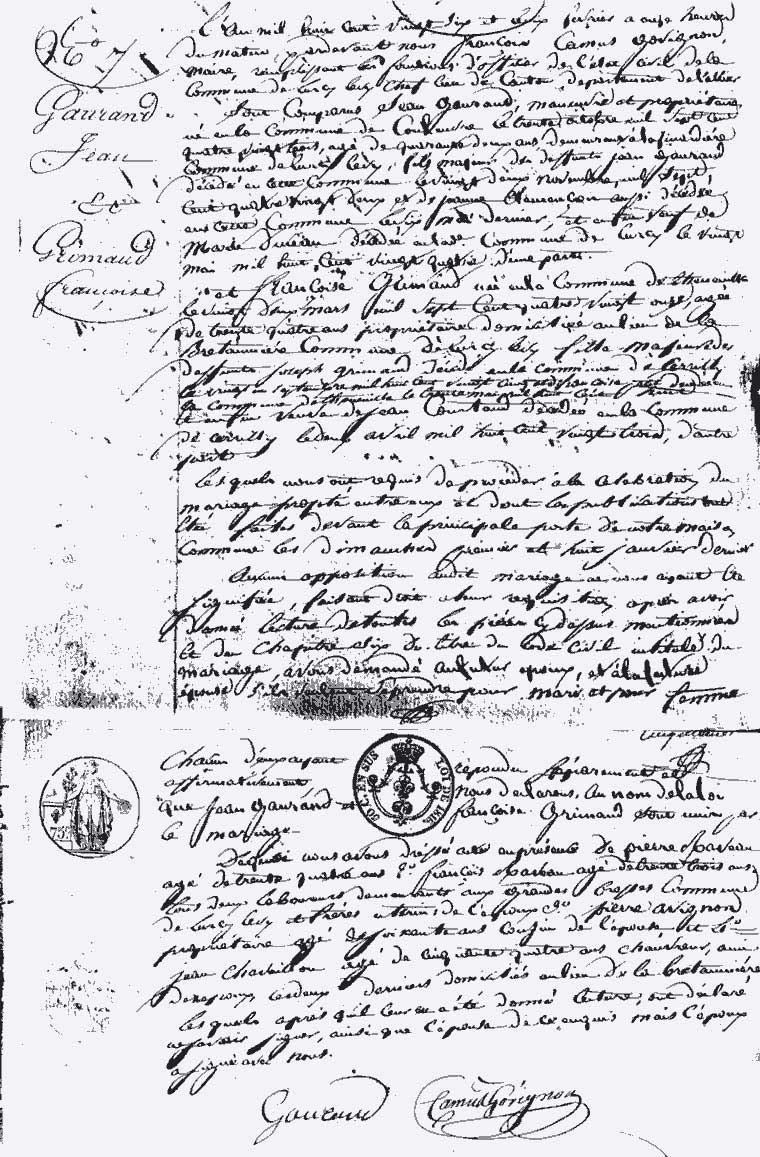 N.° 7
Gaurand
Jean
Et
Grimaud
françoise
L'an mil huit cent vingt six et le six fevrier a onze heures
du matin, pardevant nous françois Camus Gorignon,
maire, remplissant les fonctions d'officier de l'état civil de la
commune de Lurcy Levy chef lieu de Canton département de l'allier
Sont comparus Jean Gaurand, manœuvre et propriétaire
né en la Commune de Couleuvre le trente octobre mil sept cent
quatre vingt trois, agé de quarante deux ans, demeurant à
Commune de Lurcy Levy, fils majeur des deffunts jean Gaurand
décédé en cette Commune le vingt deux novembre mil sept
cent quatre vingt deux et de jeanne aussi décédée
en cette Commune le six mai dernier, et enfin veuf de
Marie décédée en la de Commune de Lurcy le vingt
mai mil huit cent vingt quatre d'une part.
et françoise Grimaud née en la Commune de
le vingt deux mars mil sept cent quatre vingt onze, agée
de trente quatre ans propriétaire domiciliée au lieu de la
Bretonnière Commune de Lurcy Levy fille majeure des
deffunts joseph grimaud décédé en la commune de Cerilly
le vingt septembre mil huit cent vingt cinq et de françoise
la commune de le mil huit cent huit
et enfin veuve de jean Courtaud décédé en la Commune
de Cerilly le deux avril mil huit cent vingt trois, d'autre
part
Lesquels nous ont requis de procéder à la célébration du
mariage projetté entre eux et dont les publications ont
été faites devant la principale porte de notre maison
Commune les dimanches premier et huit janvier dernier
Aucune opposition audit mariage ne nous ayant été
signifiée, faisant droit a leur requisition, après avoir
donné lecture de toutes les pièces ci dessus mentionnées
et du chapitre six du titre du code Civil intitulé du
mariage, avons demandé au futur epoux, et à la future
épouse s'ils veulent se prendre pour mari et pour femme
Chacun d'eux ayant répondu séparément et
affirmativement nous déclarons, au nom de la loi
que Jean Gaurand et françoise Grimaud sont unis par
le mariage.
COLL. EN SUS
LOI DE 1816
75c
De quoi nous avons dréssé acte en présence de pierre
agé de trente quatre ans 2.° françois agé de trente trois ans,
tous deux laboureurs demeurants aux grandes Commune
de Lurcy Levy et frères uterins de l'époux 3.° pierre avignon
propriétaire agé de soixante ans cousin de l'épouse et 4.°
jean agé de cinquante quatre ans chauvreur, ami
des époux, les deux derniers domiciliés au lieu de la bretonnière
lesquels après qu'il leur en a été donné lecture, ont déclaré
ne savoir signer, ainsi que l'épouse de ce enquis mais l'époux
a signé avec nous.
Gaurand Camus Gorignon